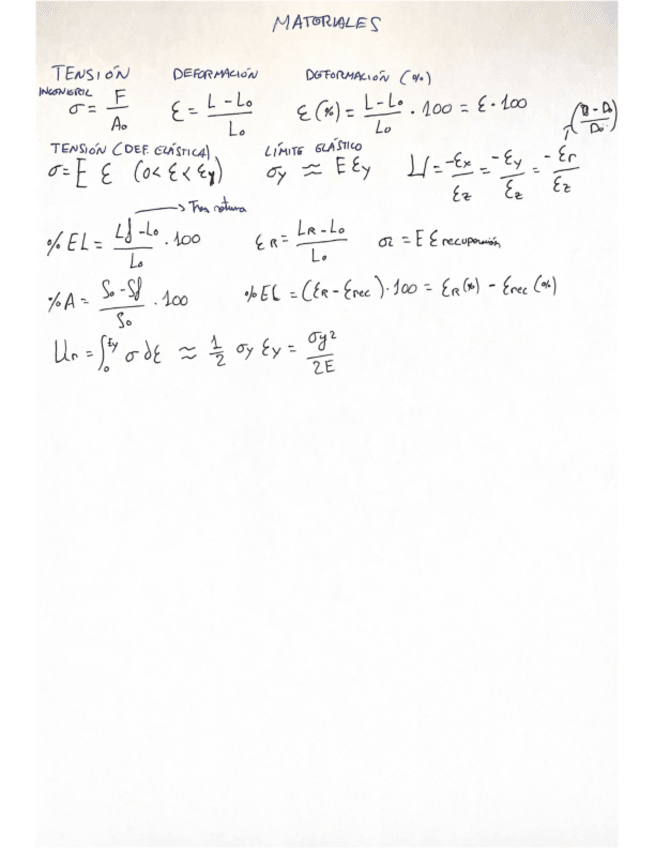 MATERIALES
TENSIÓN DEFORMACIÓN DEFORMACIÓN (%)
INGENIERIL
σ = F/A₀ ε = (L - L₀)/L₀ ε(%) = (L - L₀)/L₀ · 100 = ε · 100 ((D - D₀)/D₀)
TENSIÓN (DEF. ELÁSTICA) LÍMITE ELÁSTICO
σ = E ε (0 < ε < εy) σy ≈ E εy μ = -εx/εz = -εy/εz = -εr/εz
→ Tras rotura
% EL = (Lf - L₀)/L₀ · 100 εR = (LR - L₀)/L₀ σR = E ε recuperación
% A = (S₀ - Sf)/S₀ · 100 % EL = (εR - εrec) · 100 = εR(%) - εrec(%)
Ur = ∫₀^εy σ dε ≈ 1/2 σy εy = σy²/2E